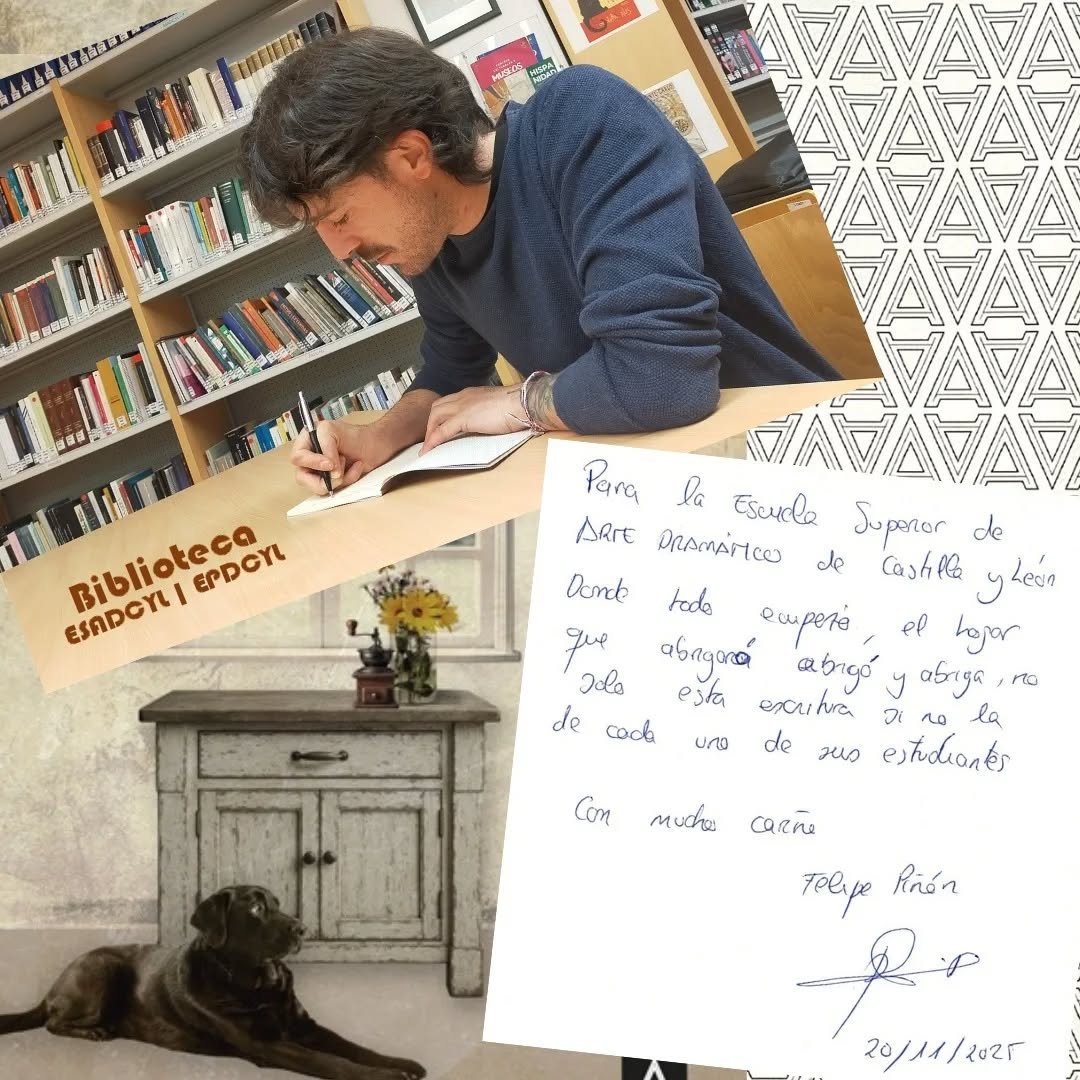 MUSEOS
HISPA
NIDAD
Biblioteca
ESADCYL | EPDCYL
Para la Escuela Superior de
ARTE DRAMÁTICO de Castilla y León
Donde todo empezó, el hogar
que abrigará abrigó y abriga, no
solo esta escritura si no la
de cada uno de sus estudiantes
Con mucho cariño
Felipe Piñón
20/11/2025